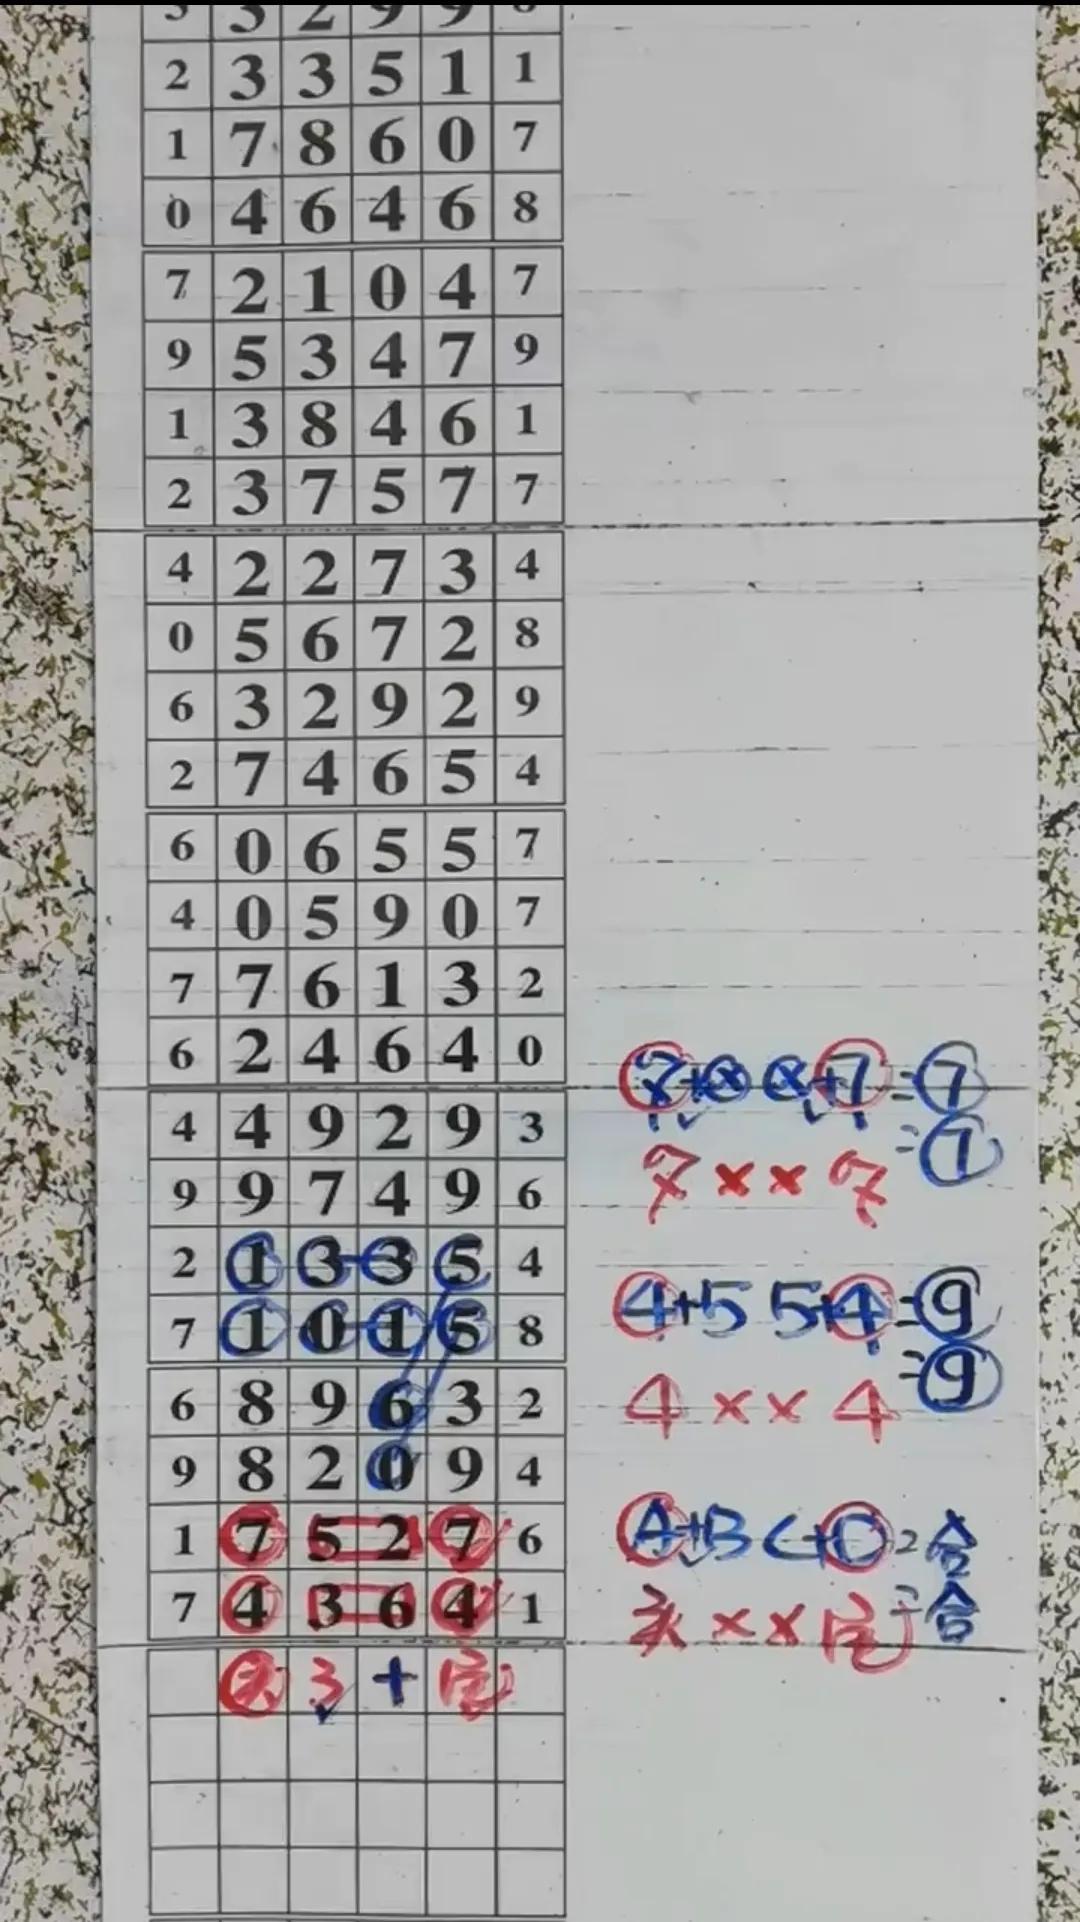 2 3 3 5 1 1
1 7 8 6 0 7
0 4 6 4 6 8
7 2 1 0 4 7
9 5 3 4 7 9
1 3 8 4 6 1
2 3 7 5 7 7
4 2 2 7 3 4
0 5 6 7 2 8
6 3 2 9 2 9
2 7 4 6 5 4
6 0 6 5 5 7
4 0 5 9 0 7
7 7 6 1 3 2
6 2 4 6 4 0
4 4 9 2 9 3
9 9 7 4 9 6
2 1 3 3 5 4
7 1 0 1 5 8
6 8 9 6 3 2
9 8 2 0 9 4
1 7 5 2 7 6
7 4 3 6 4 1
3 +
=7
=7
7 × × 7
4+5 5+4=9
=9
4 × × 4
A+B C+D=合
头 × × 尾=合